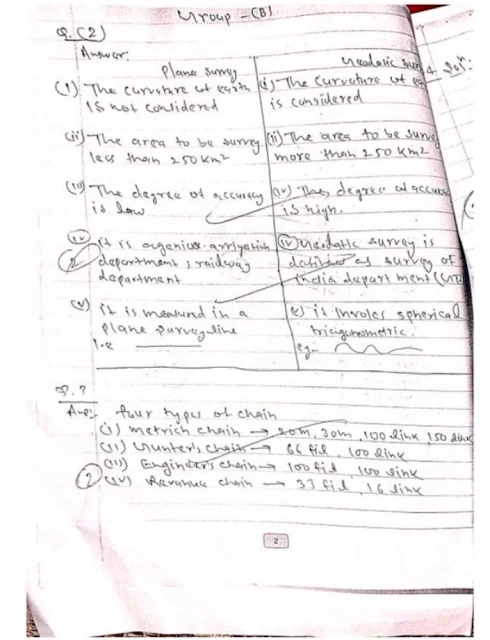 Group - (B)
Q. (2)
Answer:
Plane survey
(i) The curvature of earth
is not considered
(ii) The area to be survey
less than 250 km²
(iii) The degree of accuracy
is low
(iv) it is
department, railway
department
(v) it is measured in a
plane survey line
i.e
Geodatic sur
(i) The curvature of ea
is considered
(ii) The area to be surve
more than 250 km²
(iv) The degree of accura
is high.
(iv) Geodatic survey is
as survey of
india depart ment (
(v) it involes spherical
eg-
Q. ?
Ans:- four types of chain
(i) metrich chain → 20m, 30m, 100 link, 150 link
(ii) Gunter's chain → 66 fid, 100 link
(iii) Engineer's chain → 100 fid, 100 link
(iv) Ravanue chain → 33 fid, 16 link
2